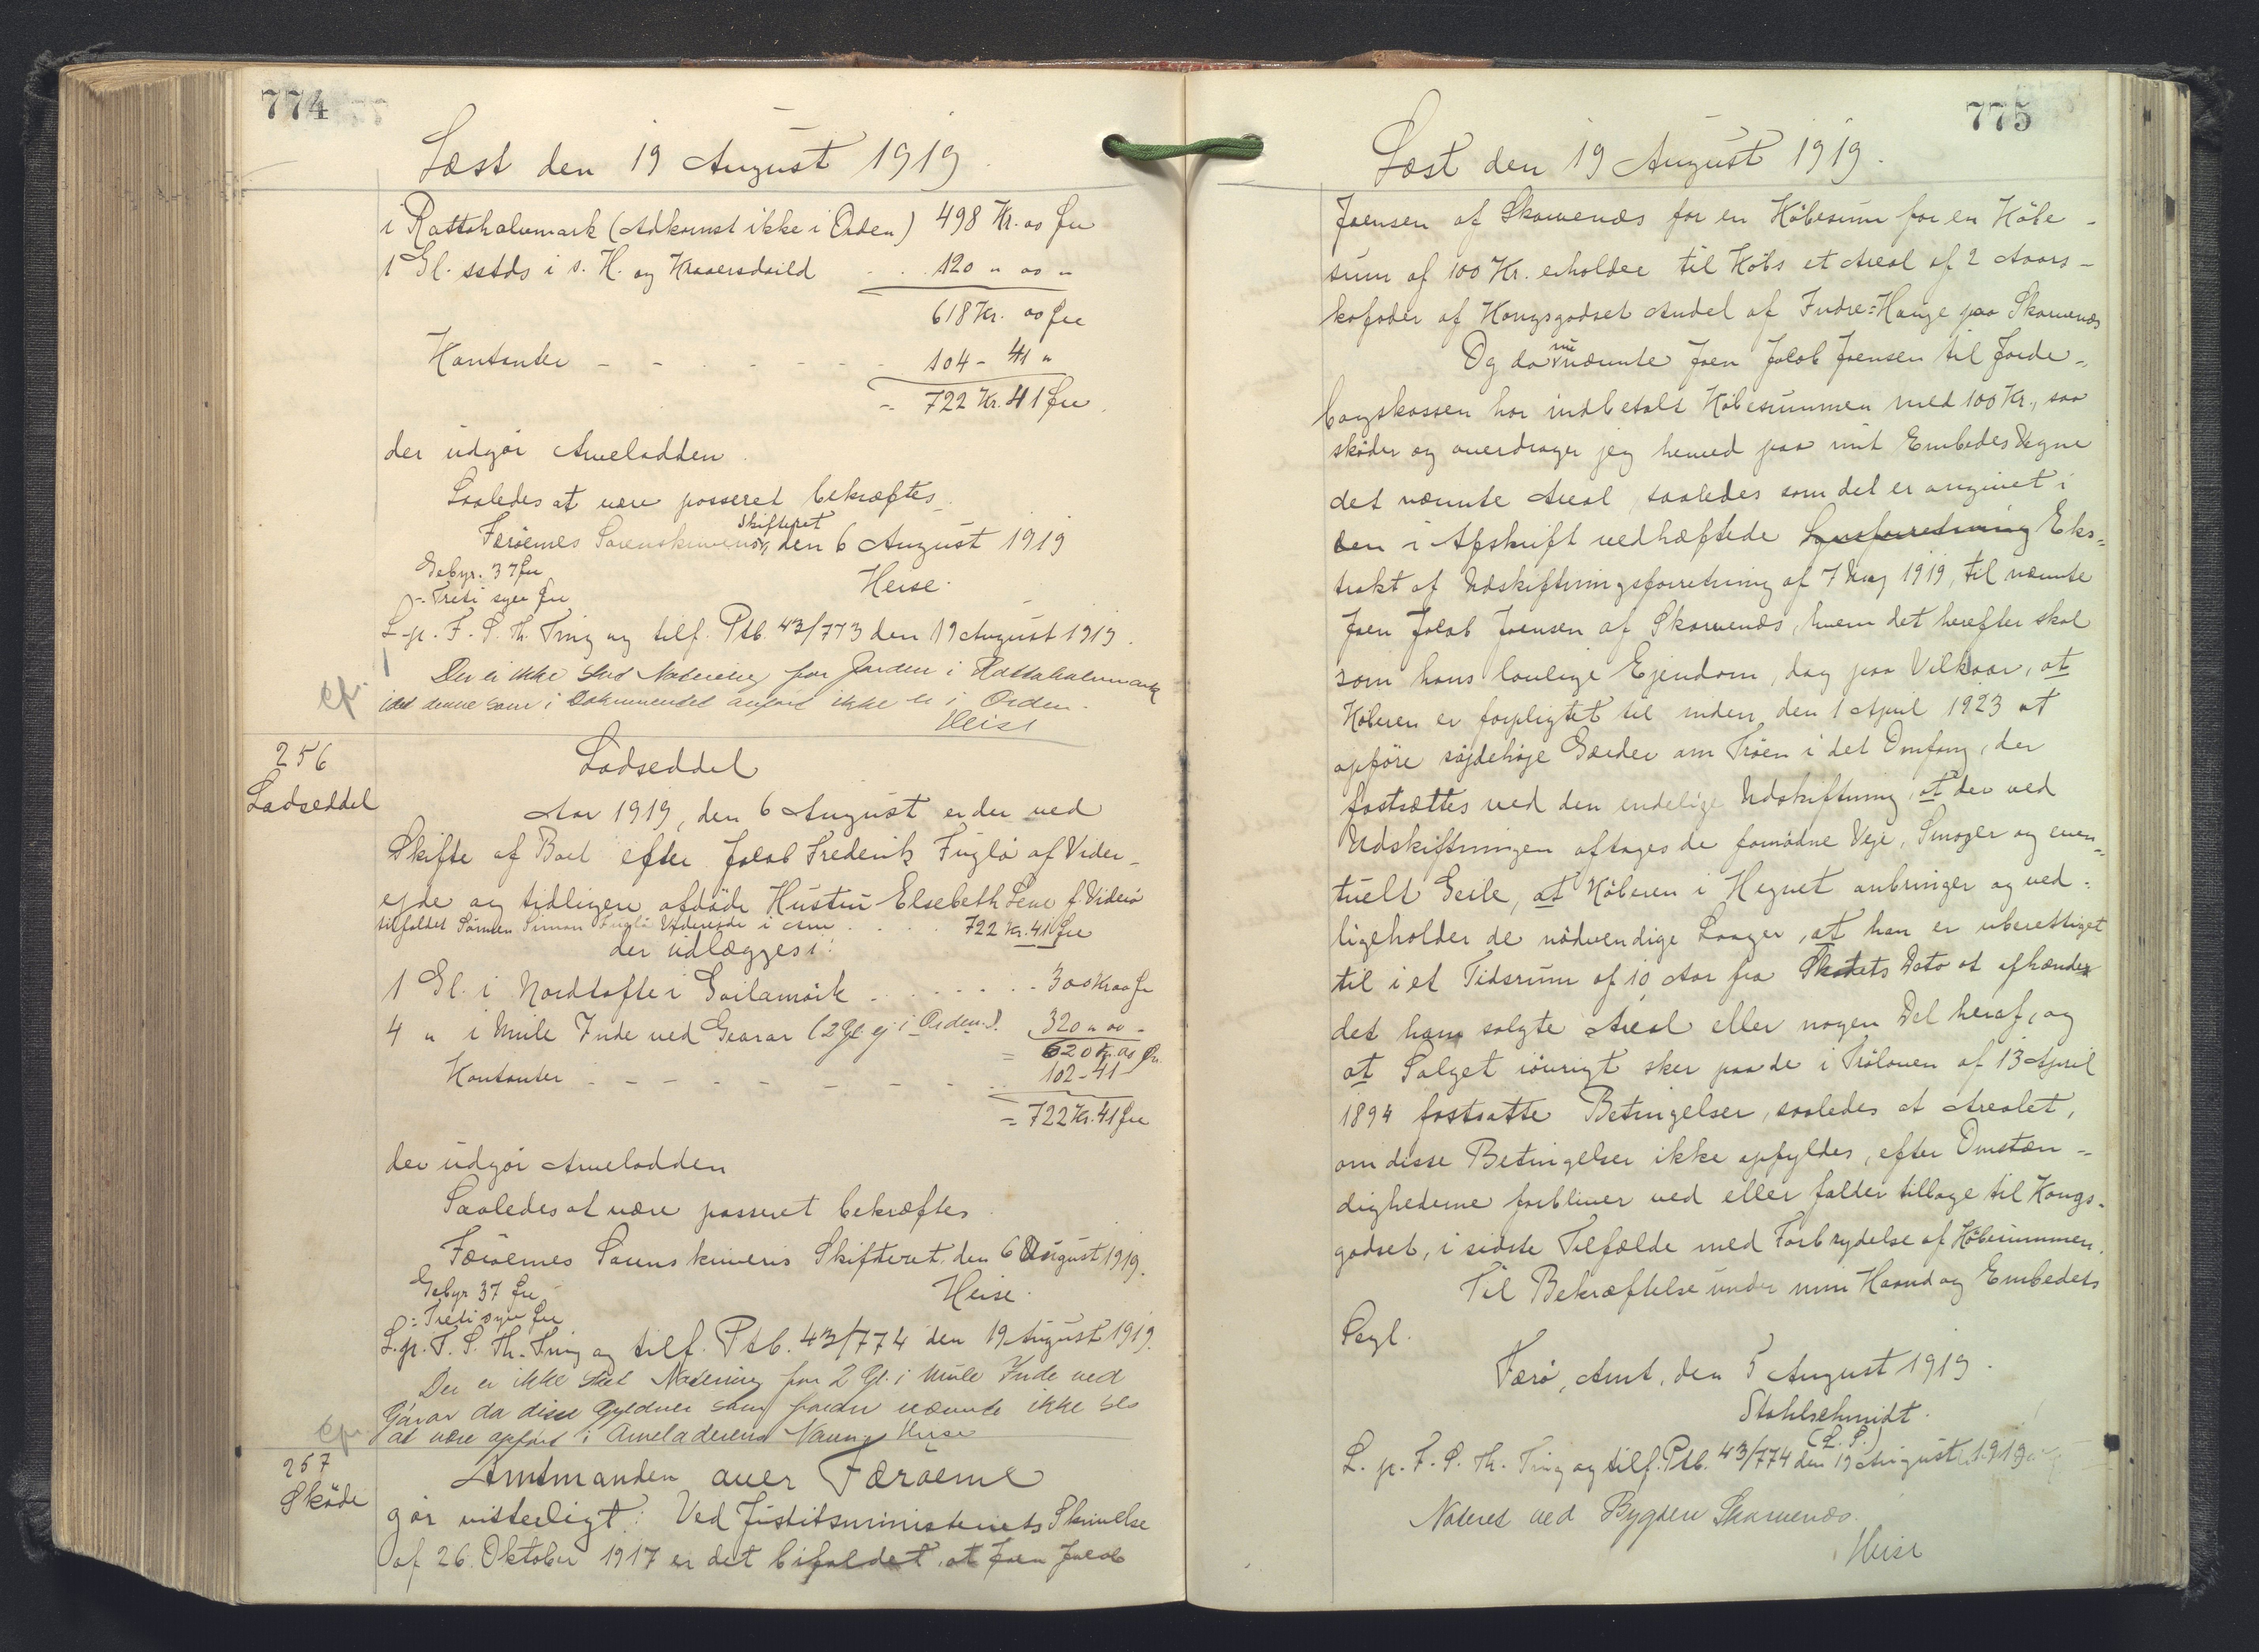 774
Læst den 19 August 1919.
i Rattahalvmark (Adkomst ikke i Orden) 498 Kr. 00 Øre
1 Gl. sstds i s. H. og .. 120 " 00 "
618 Kr. 00 Øre
Kontanter - - - - - - 104 - 41 "
= 722 Kr. 41 Øre.
der udgør Arvelodden.
Saaledes at være passeret bekræftes.
Færøernes Sorenskriveris Skifteret den 6 August 1919
Gebyr. 37 Øre
Heise.
= Treti syv Øre
L. p. F. S. Th. Ting og tilf. Ptb. 43/773 den 19 August 1919.
Der er ikke sket Notering for Jorden i Rattahalvmark
cfr.
idet denne som i Dokumentet anført ikke er i Orden.
Heise
256
Lodseddel
Lodseddel
Aar 1919, den 6 August er der ved
Skifte af Boet efter Jakob Frederik Fuglø af Vider-
ejde og tidligere afdøde Hustru Elsebeth Lene f. Viderø
tilfaldet Sønnen Simon Fuglø Viderejde i Arv . . . 722 Kr. 41 Øre
der udlægges i:
1 Gl. i Nordtofte i . . . . . . . 300 Kr 00 Øre
4 " i Mule Inde ved Gearar (2 Gl. ej i Orden). 320 " 00 -
= 620 Kr. 00 Øre.
Kontanter - - - - - - - - .. 102 - 41
= 722 Kr. 41 Øre
der udgør Arvelodden
Saaledes at være passeret bekræftes.
Færøernes Sorenskriveris Skifteret, den 6 August 1919.
Gebyr 37 Øre
Heise.
= Treti syv Øre
L. p. F. S. Th. Ting og tilf. Ptb. 43/774 den 19 August 1919.
Der er ikke sket Notering for 2 Gl. i Mule Inde ved
Gárar da disse Gyldner som foran nævnte ikke ses
cfr.
at være opført i Arveladerens Navn. Heise
257
Skøde
Amtmanden over Færøerne
gør vitterligt: Ved Justitsministeriets Skrivelse
af 26. Oktober 1917 er det bifaldet, at Joen Jacob
775
Læst den 19 August 1919.
Joensen af Skaruenæs for en Købesum for en Købe-
sum af 100 Kr. erholder til Købs et Areal af 2 Aars-
kofoder af Kongsgodset Andel af Indre=Hauge paa Skaruenæs
Og da nu nævnte Joen Jakob Joensen til Jorde-
bogskassen har indbetalt Købesummen med 100 Kr., saa
skøder og overdrager jeg herved paa mit Embedes Vegne
det nævnte Areal, saaledes som det er angivet i
den i Afskrift vedhæftede Synsforretning Eks=
trakt af Udskiftningsforretning af 7 Maj 1919, til nævnte
Joen Jakob Joensen af Skaruenæs, hvem det herefter skal
som hans lovlige Ejendom, dog paa Vilkaar, at
Køberen er forpligtet til inden den 1 April 1923 at
opføre søjdehøje Gærder om Trøen i det Omfang, der
fastsættes ved den endelige Udskiftning, at der ved
Udskiftningen aftages de fornødne Veje, Smøger og even=
tuelt Geile, at Køberen i Hegnet anbringer og ved=
ligeholder de nødvendige Laager, at han er uberettiget
til i et Tidsrum af 10 Aar fra Skødets Dato at afhænde
det ham solgte Areal eller nogen Del heraf, og
at Salget iøvrigt sker paa de i Trøloven af 13 April
1894 fastsatte Betingelser, saaledes at Arealet,
om disse Betingelser ikke opfyldes, efter Omstæn=
dighederne forbliver ved eller falder tilbage til Kongs-
godset, i sidste Tilfælde med Forbrydelse af Købesummen.
Til Bekræftelse under min Haand og Embedets
Segl.
Færø Amt, den 5 August 1919.
Stahlschmidt.
(L. S.)
L. p. F. S. Th. Ting og tilf. Ptb. 43/774 den 19 August 1919
Noteret ved Bygden Skaruenæs.
Heise